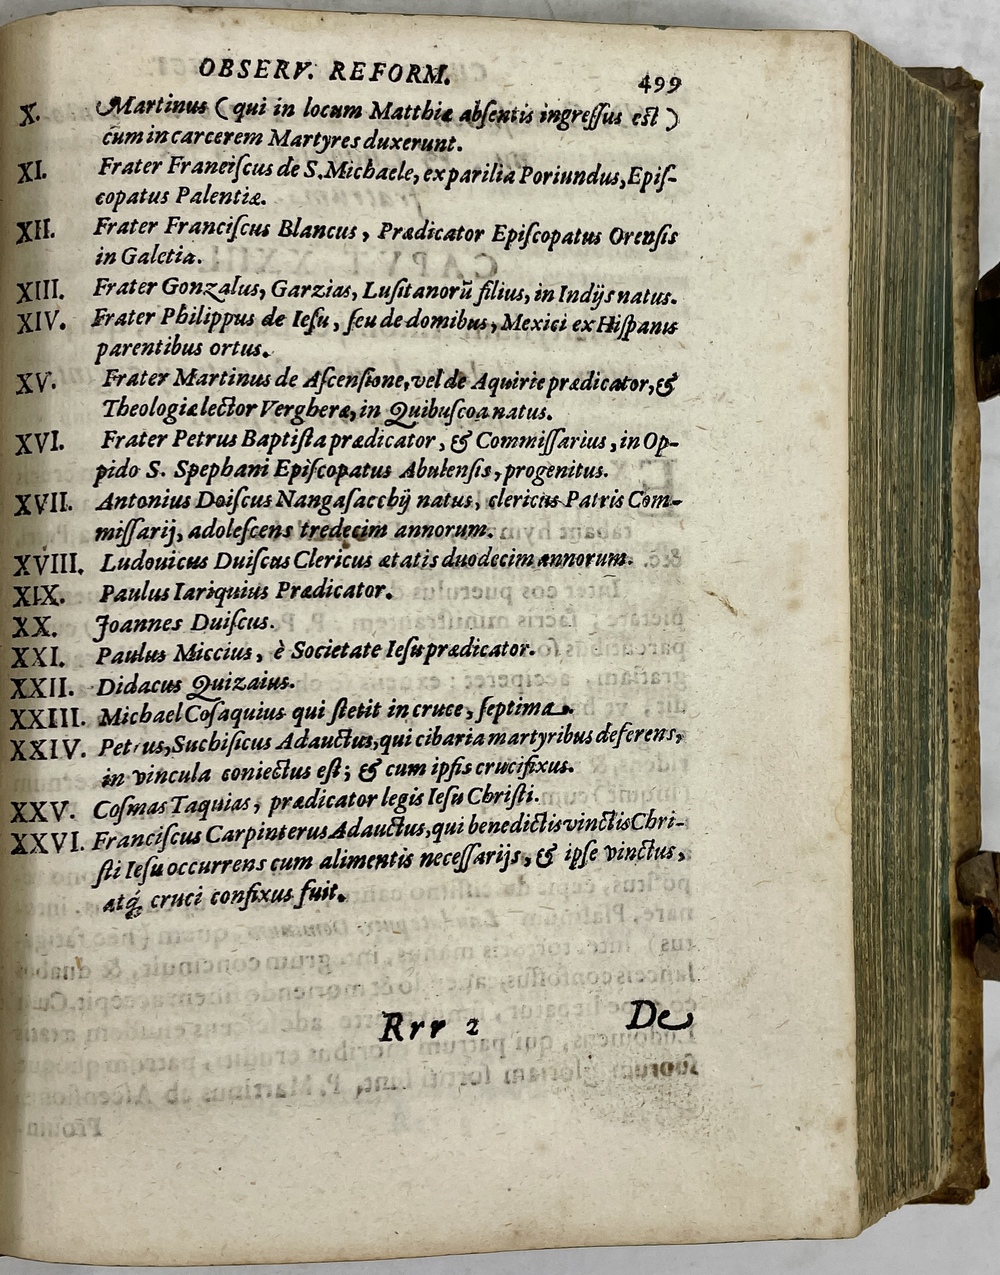 OBSERV. REFORM. 499
X. Martinus ( qui in locum Matthiæ absentis ingressus est )
cum in carcerem Martyres duxerunt.
XI. Frater Franciscus de S. Michaele, ex parilia Poriundus, Epis-
copatus Palentiæ.
XII. Frater Franciscus Blancus, Prædicator Episcopatus Orensis
in Galetia.
XIII. Frater Gonzalus, Garzias, Lusitanorũ filius, in Indijs natus.
XIV. Frater Philippus de Iesu, seu de domibus, Mexici ex Hispanis
parentibus ortus.
XV. Frater Martinus de Ascensione, vel de Aquirie prædicator, &
Theologiæ lector Vergheræ, in Quibuscoa natus.
XVI. Frater Petrus Baptista prædicator, & Commissarius, in Op-
pido S. Spephani Episcopatus Abulensis, progenitus.
XVII. Antonius Doiscus Nangasacchij natus, clericus Patris Com-
missarij, adolescens tredecim annorum.
XVIII. Ludouicus Duiscus Clericus ætatis duodecim annorum.
XIX. Paulus Iariquius Prædicator.
XX. Joannes Duiscus.
XXI. Paulus Miccius, è Societate Iesu prædicator.
XXII. Didacus Quizaius.
XXIII. Michael Cosaquius qui stetit in cruce, septima.
XXIV. Petrus, Suchisicus Adauctus, qui cibaria martyribus deferens,
in vincula coniectus est; & cum ipsis crucifixus.
XXV. Cosmas Taquias, prædicator legis Iesu Christi.
XXVI. Franciscus Carpinterus Adauctus, qui benedictis vinctis Chri-
sti Iesu occurrens cum alimentis necessarijs, & ipse vinctus,
atq́; cruci confixus fuit.
Rrr 2 De